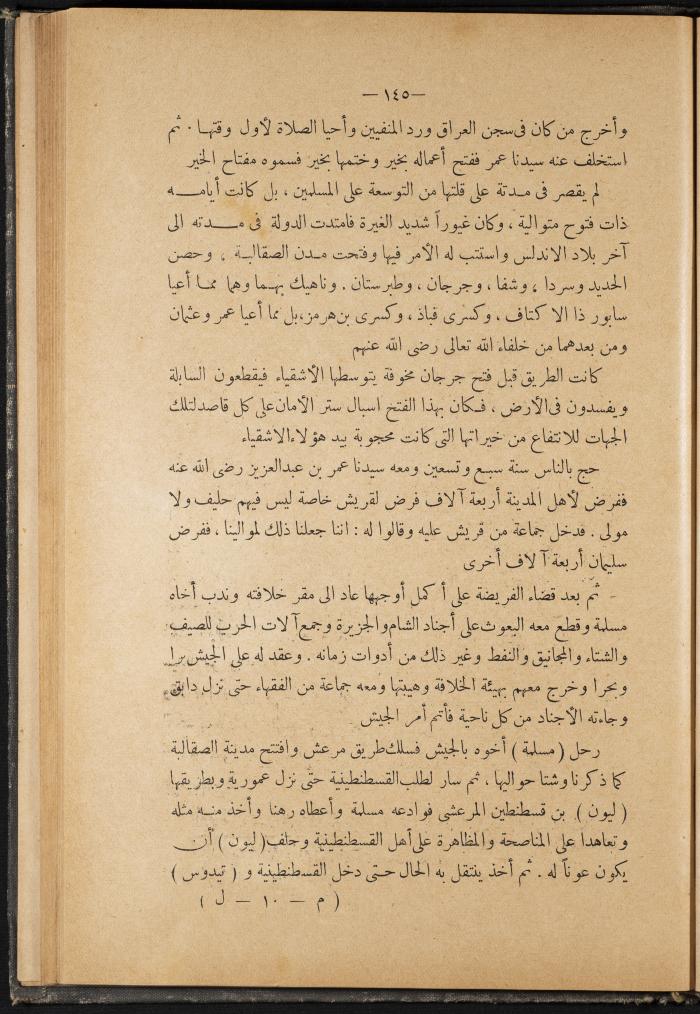 —١٤٥—
وأخرج من كان فى سجن العراق ورد المنفيين وأحيا الصلاة لأول وقتها . ثم
استخلف عنه سيدنا عمر ففتح أعماله بخير وختمها بخير فسموه مفتاح الخير
لم يقصر فى مدتة على قلتها من التوسعة على المسلمين ، بل كانت أيامه
ذات فتوح متوالية ، وكان غيوراً شديد الغيرة فامتدت الدولة فى مدته الى
آخر بلاد الاندلس واستتب له الأمر فيها وفتحت مدن الصقالبة ، وحصن
الحديد وسردا ، وشفا ، وجرجان ، وطبرستان . وناهيك بهما وهما مما أعيا
سابور ذا الاكتاف ، وكسرى قباذ ، وكسرى بن هرمز، بل مما أعيا عمر وعثمان
ومن بعدهما من خلفاء الله تعالى رضى الله عنهم
كانت الطريق قبل فتح جرجان مخوفة يتوسطها الأشقياء فيقطعون السابلة
ويفسدون فى الأرض ، فكان بهذا الفتح اسبال ستر الأمان على كل قاصد لتلك
الجهات للانتفاع من خيراتها التى كانت محجوبة بيد هؤلاء الاشقياء
حج بالناس سنة سبع وتسعين ومعه سيدنا عمر بن عبدالعزيز رضى الله عنه
ففرض لأهل المدينة أربعة آلاف فرض لقريش خاصة ليس فيهم حليف ولا
مولى . فدخل جماعة من قريش عليه وقالوا له : اننا جعلنا ذلك لموالينا ، ففرض
سليمان أربعة آلاف أخرى
ثم بعد قضاء الفريضة على أكمل أوجهها عاد الى مقر خلافته وندب أخاه
مسلمة وقطع معه البعوث على أجناد الشام والجزيرة وجمع آلات الحرب للصيف
والشتاء والمجانيق والنفط وغير ذلك من أدوات زمانه . وعقد له على الجيش برا
وبحرا وخرج معهم بهيئة الخلافة وهيبتها ومعه جماعة من الفقهاء حتى نزل دابق
وجاءته الأجناد من كل ناحية فأتم أمر الجيش
رحل ( مسلمة ) أخوه بالجيش فسلك طريق مرعش وافتتح مدينة الصقالبة
كما ذكرنا وشتا حواليها ، ثم سار لطلب القسطنطينية حتى نزل عمورية وبطريقها
( ليون ) بن قسطنطين المرعشى فوادعه مسلمة وأعطاه رهنا وأخذ منه مثله
وتعاهدا على المناصحة والمظاهرة على أهل القسطنطينية وحلف ( ليون ) أن
يكون عوناً له . ثم أخذ ينتقل به الحال حتى دخل القسطنطينية و ( تيدوس )
( م — ١٠ — ل )